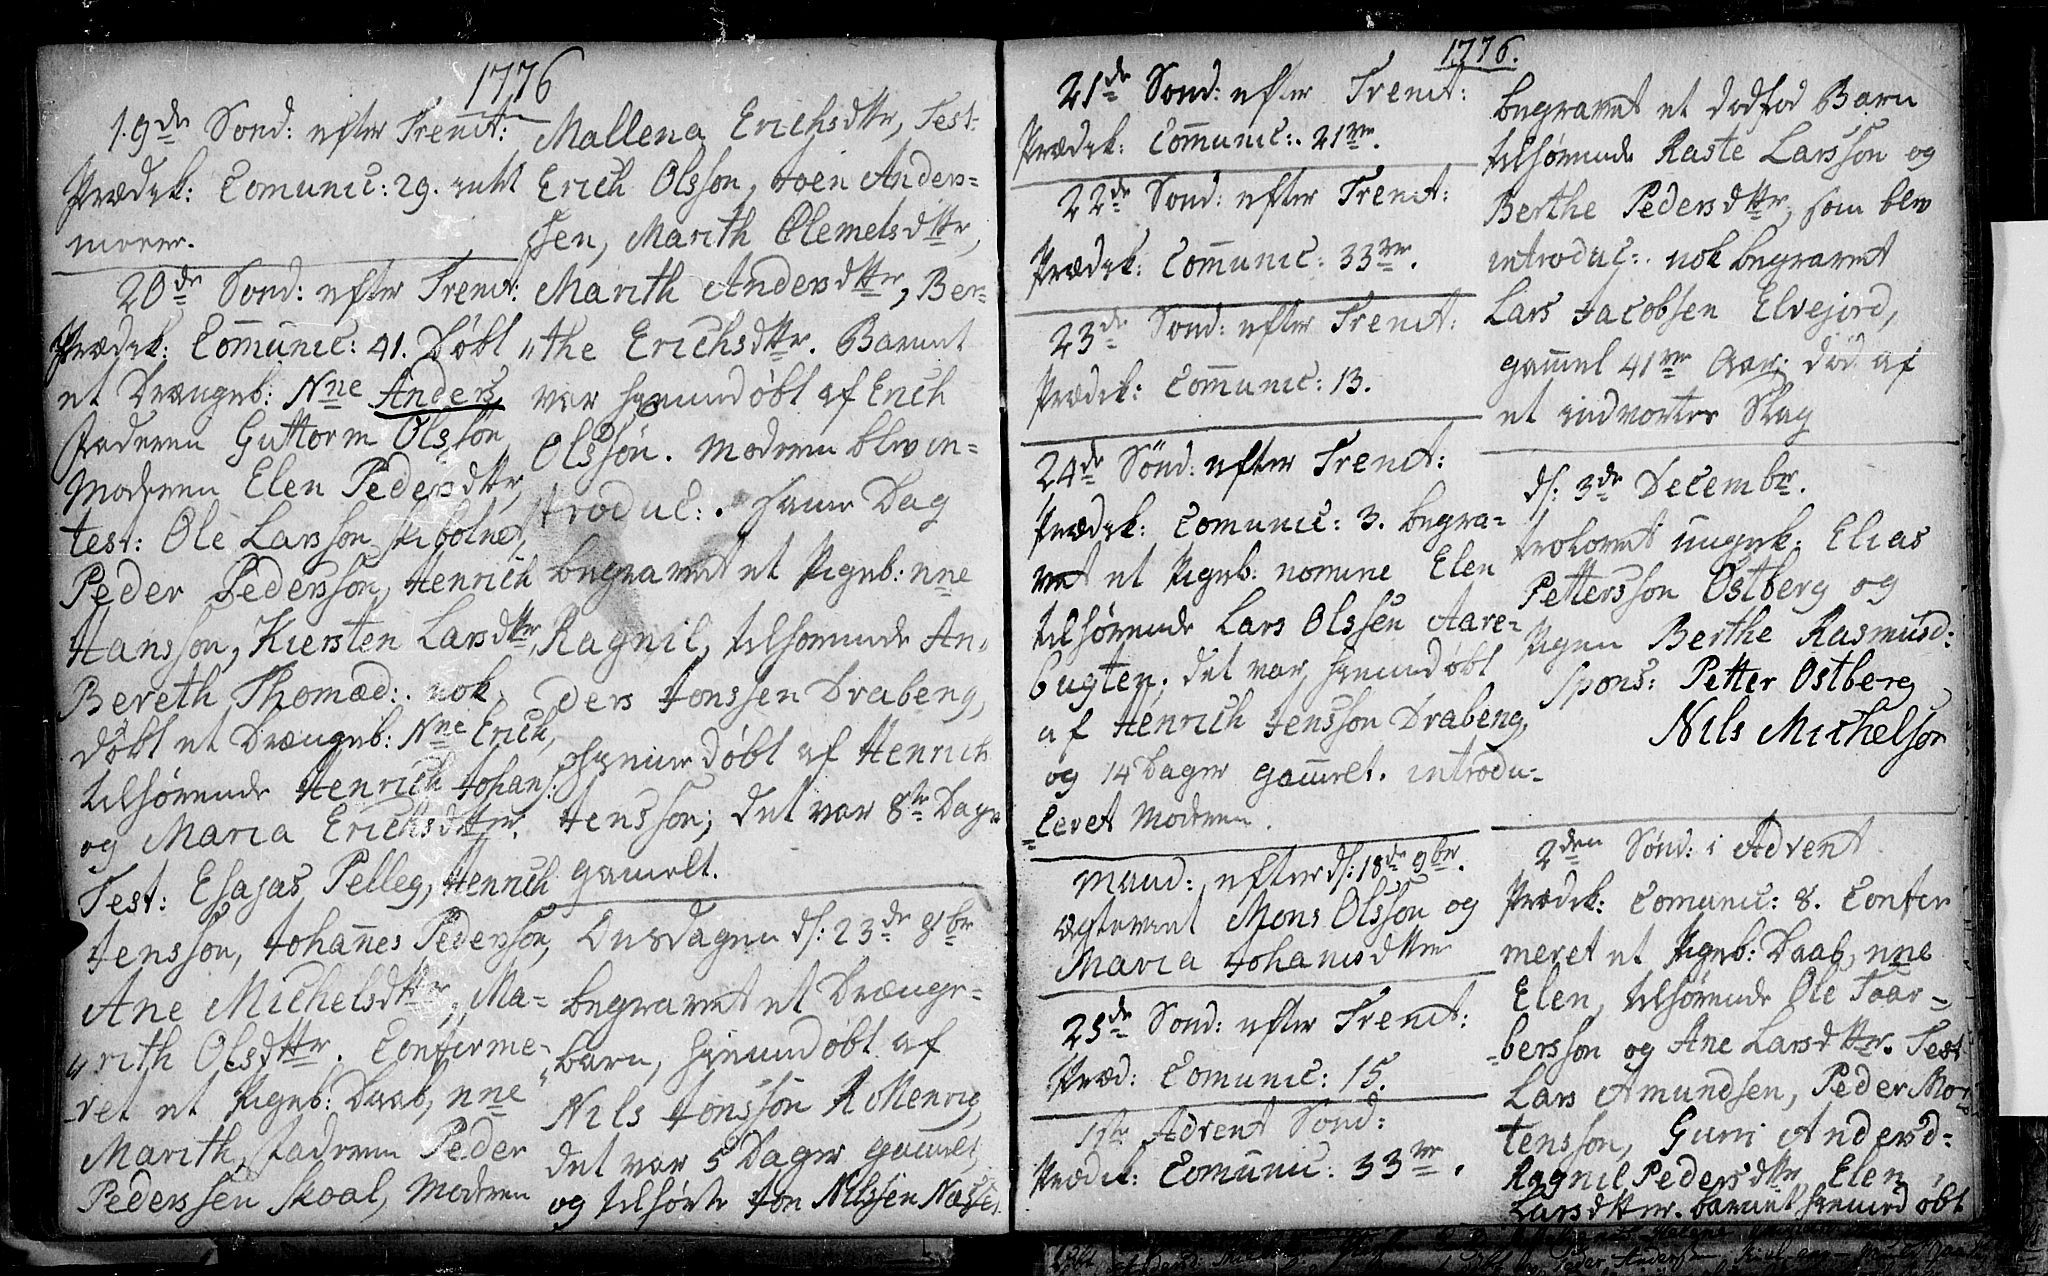 1776
19de Sønd: efter Trenit:
Prædik: Communic: 29. intet
meere.
20de Sond: efter Trenit:
Prædik: Communic: 41. Døbt
et Drængeb: Nne Anders
Faderen Guttorm Olsson
Moderen Elen Pedersdttr,
test: Ole Larsson Skibolnes,
Peder Pedersson, Henrich
Hansson, Kiersten Larsdttr,
Bereth Thomæd:. nok
døbt et Drængeb: Nne Erich,
tilhørende Henrich Johans:
og Maria Erichsdttr.
Test: Esajas Pelleg, Henrich
Jensson, Johannes Pedersson,
Ane Michelsdttr, Ma-
"rith Olsdttr. Confirme-
-ret et Pigeb: Daab, nne
Marith, Faderen Peder
Pederssen Skoal, Moderen
Mallena Erichsdttr, Test:
Erich Olsson, Joen Anders=
sen, Marith Clemetsdttr,
Marith Andersdttr, Ber-
"the Erichsdttr. Barnet
var hjemmedøbt af Erich
Olsson. Moderen blev in=
troduc:. Same Dag
begravet et Pigeb: nne
Ragnil, tilhørende An-
ders Jonssen Drabeng,
hjemmedøbt af Henrich
Jensson; det var 8te Dage
gamelt.
Onsdagen d: 23de 8br
begravet et Drænge-
"barn, hjemmedøbt af
Nils Jonsson Rottenvig,
det var 5 Dager gamelt,
og tilhørte Jon Nilssen
1776.
21de Sond: efter Trenit:
Prædik: Communic:. 21ve.
22de Sond: efter Trenit:
Prædik: Communic: 33ve.
23de Sond: efter Trenit:
Prædik: Communic: 13.
24de Sønd: efter Trenit:
Prædik: Communic: 3. begra=
vet et Pigeb: nomine Elen
tilhørende Lars Olssen Aare-
bugten. det var hjemmedøbt
af Henrich Jensson Drabeng,
og 14 Dager gamelt. introdu-
ceret Moderen.
Mand: efter d: 18de 9br.
Ægteviet Mons Olsson og
Maria Johanisdttr
25de Sond: efter Trenit:
Præd: Communic: 15.
1ste Advent Sond:
Prædik: Communic: 33ve.
begravet et dødfød Barn
tilhørende Raste Larsson og
Berthe Pedersdttr, som blev
introduc:. nok begravet
Lars Jacobsen Elvejord,
gammel 41ve Aar: død af
et indvortes Slag
d: 3de Decembr.
trolovet ungk: Elias
Pettersson Ostberg og
Pigen Berthe Rasmusd:
Spons: Petter Ostberg
Nils Michelson
2den Sønd: i Advent
Prædik: Communic: 8. Confir
meret et Pigeb: Daab, nne
Elen, tilhørende Ole Toar-
-bersson og Ane Larsdttr. Test
Lars Amundsen, Peder Mor=
tensson, Guri Andersd=
Ragnil Pedersdttr, Elen
Larsdttr. barnet hjemmedøbt